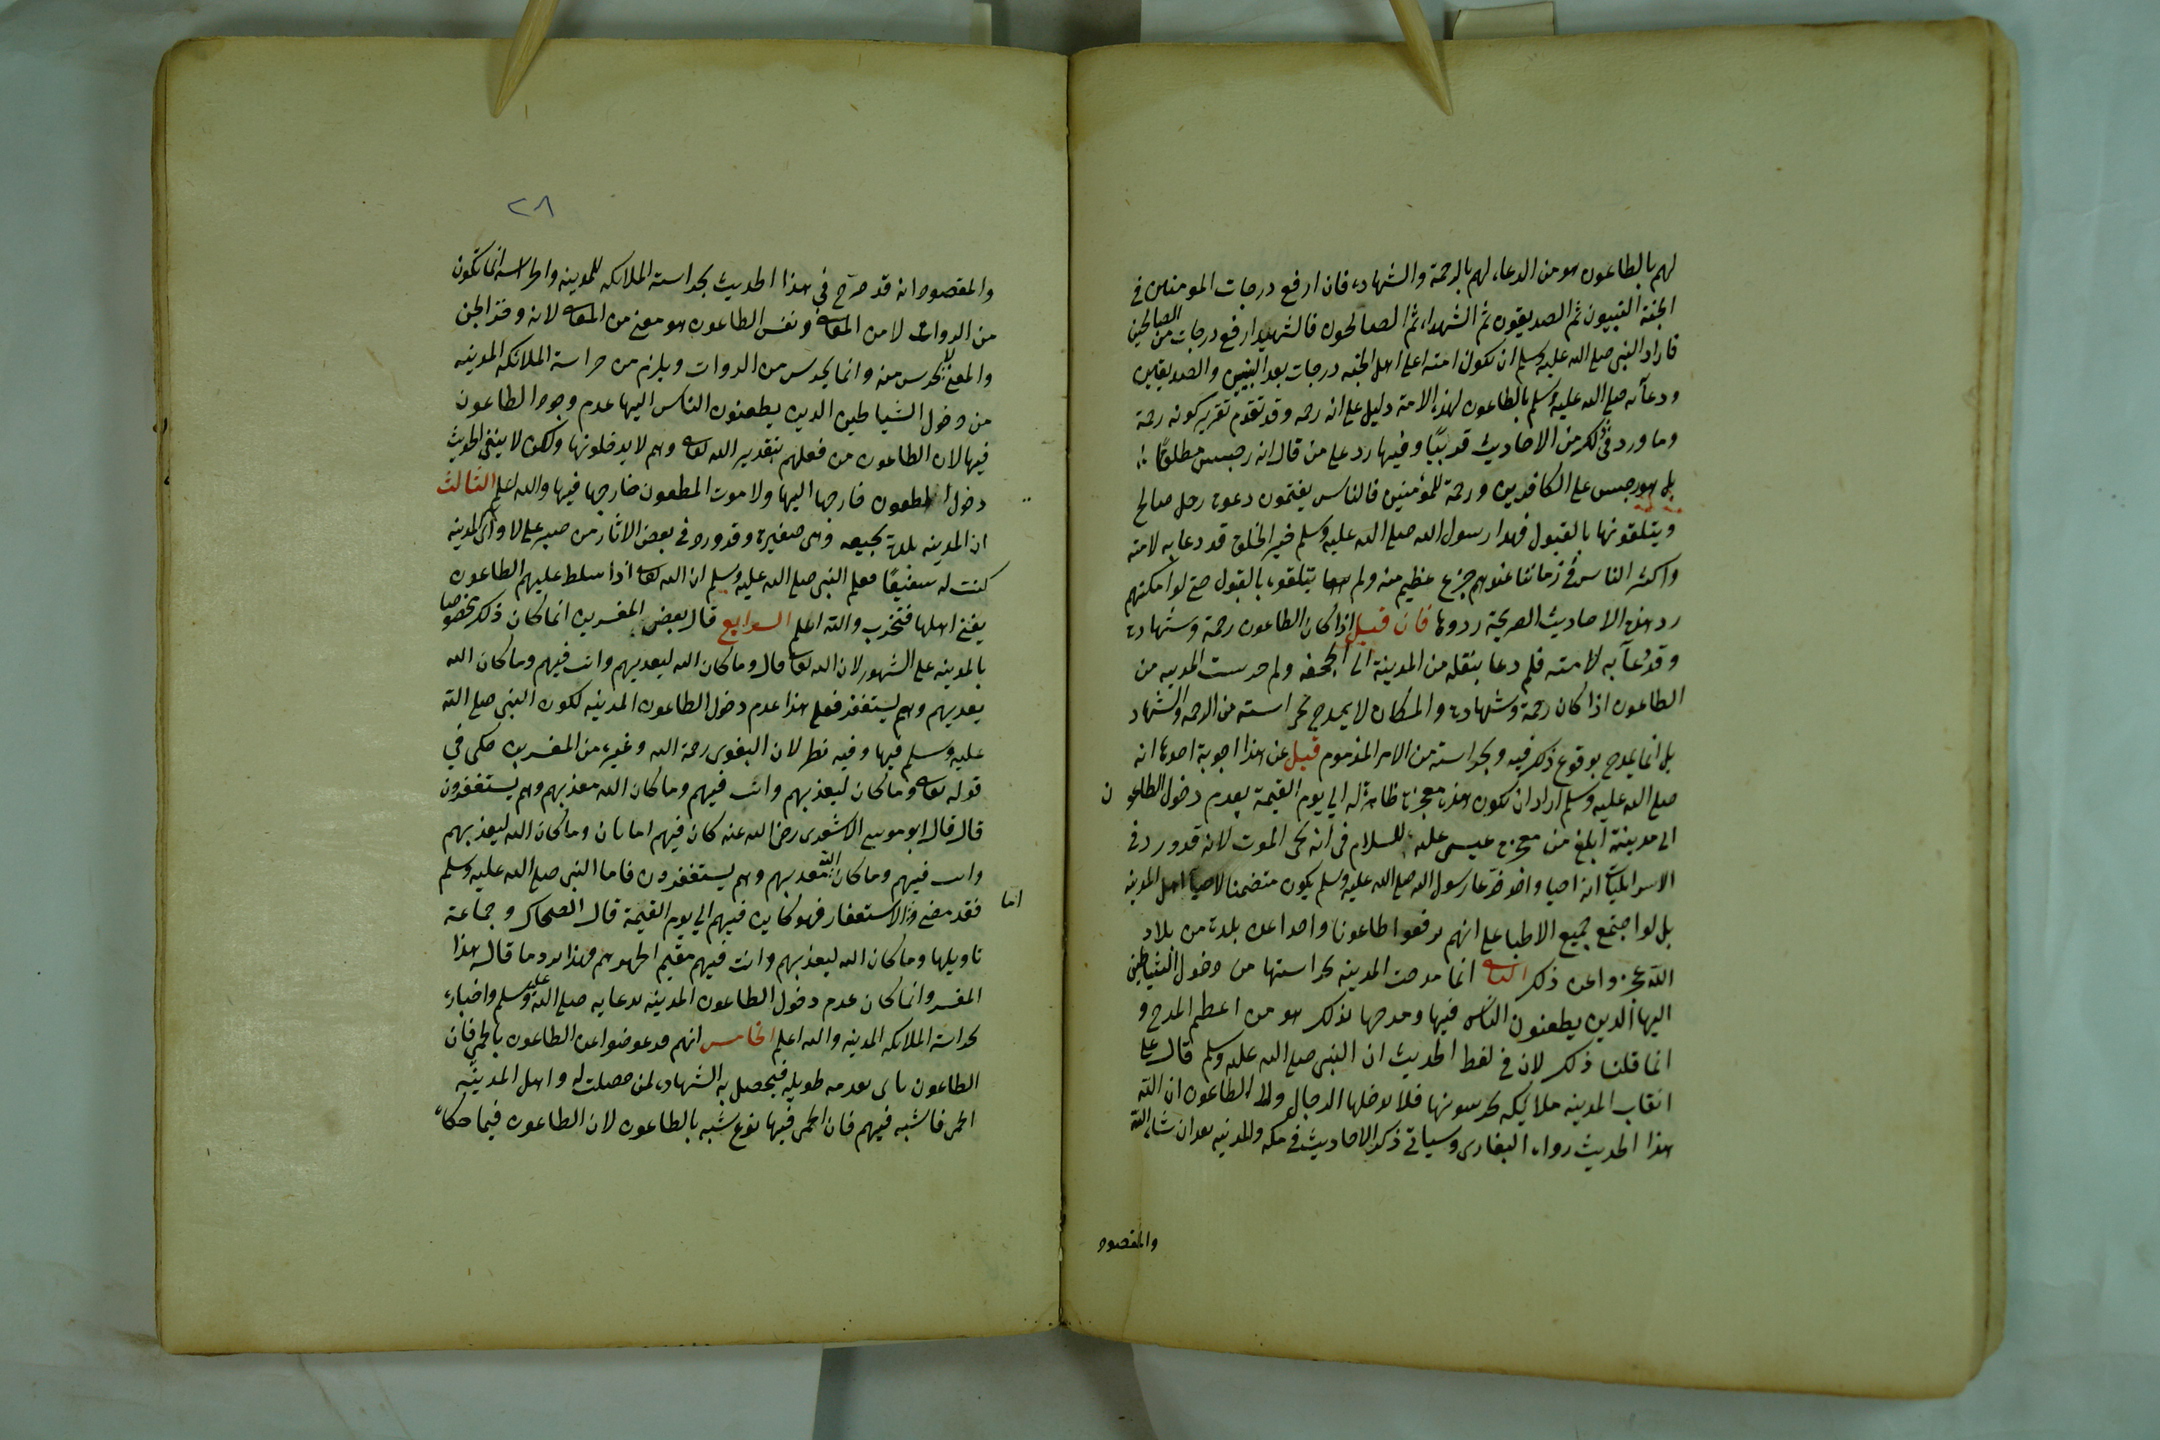 لهم بالطاعون هو من الدعاء لهم بالرحمة والشهادة فان ارفع درجات المومنين في
الجنة النبيون ثم الصديقون ثم الشهداء ثم الصالحون فالشهيد ارفع درجات من الصالحين
فاراد النبي صلى الله عليه وسلم ان تكون امته اعلى اهل الجنه درجات بعد النبيين والصديقين
ودعاه صلى الله عليه وسلم بالطاعون لهذه الامة دليل على انه رحمه وقد تقدم تقرير كونه رحمة
وما ورد في ذلك من الاحاديث قد بينا وفيها رد على من قال انه رجس مطلقا
بل هو رجس على الكافرين ورحمة للمؤمنين فالناس يغتمون دعوة رجل صالح
ويتلقونها بالقبول فهذا رسول الله صلى الله عليه وسلم خير الخلق قد دعا به لامته
واكثر الناس في زماننا عندهم جزع عظيم منه ولم يتلقوه بالقبول حتى لو امكنهم
رد هذه الاحاديث الصريحة ردوها فان قيل اذا كان الطاعون رحمة وشهادة
وقد دعا به لامته فلم دعا بنقله من المدينة الى الجحفه ولم حرست المدينه من
الطاعون اذا كان رحمة وشهادة والمكان لا يمدح بحراسته من الرحمه والشهاد
بل انما يمدح بوقوع ذكر فيه وبحراسته من الامر المذموم قيل عن هذا اجوبة احدها انه
صلى الله عليه وسلم اراد ان تكون هذه معجزة ظاهرة له الي يوم القيمة بعدم دخول الطاعون
الى مدينته ابلغ من معجزة عيسى عليه السلام في انه يحيى الموتى لانه قد ورد في
الاسرايليات انه احيا واحدا فدعا رسول الله صلى الله عليه وسلم يكون متضمنا لاحيا اهل المدينه
بل لو اجتمع جميع الاطبا على انهم يرفعوا طاعونا واحدا عن بلدة من بلاد
الله عجزوا عن ذلك الثاني انما مدحت المدينه بحراستها من دخول الشياطين
اليها الذين يطعنون الناس فيها ومدحها بذلك هو من اعظم المدح و
انما قلنا ذلك لان في لفظ الحديث ان النبي صلى الله عليه وسلم قال على
انقاب المدينه ملايكه يحرسونها فلا يدخلها الدجال ولا الطاعون ان الله
هذا الحديث رواه البخارى وسياتي ذكر الاحاديث في مكه والمدينه بعد ان شا الله
والمقصود
٢٨
والمقصود انه قد صرح في هذا الحديث بحراسة الملائكه للمدينه والحراسه انما تكون
من الذوات لا من المعاني ونفس الطاعون هو معنى من المعاني لانه وخز الجن
والمعنى لا يحرس منه وانما يحرس من الذوات ويلزم من حراسة الملائكه المدينه
من دخول الشياطين الذين يطعنون الناس اليها عدم وجود الطاعون
فيها لان الطاعون من فعلهم بتقدير الله تعالى وهم لا يدخلونها ولكن لا ينفي الحديث
دخول المطعون خارجها اليها ولا موت المطعون خارجها فيها والله اعلم الثالث
ان المدينه بلدة وهى صغيرة وقد ورد في بعض الاثار من صبر على لاواى المدينه
كنت له شفيعا فعلم النبي صلى الله عليه وسلم ان الله تعالى اذا سلط عليهم الطاعون
يفنى اهلها فتخرب والله اعلم الرابع قال بعض المفسرين انما كان ذلك مخصوصا
بالمدينه على الشهور لان الله تعالى قال وما كان الله ليعذبهم وانت فيهم وما كان الله
يعذبهم وهم يستغفرون فعلى هذا عدم دخول الطاعون المدينه لكون النبي صلى الله
عليه وسلم فيها وفيه نظر لان البغوى رحمة الله وغيره من المفسرين حكى في
قوله تعالى وما كان ليعذبهم وانت فيهم وما كان الله معذبهم وهم يستغفرون
قال قال ابو موسى الاشعرى رضى الله عنه كان فيهم امانان وما كان الله ليعذبهم
وانت فيهم وما كان الله معذبهم وهم يستغفرون فاما النبي صلى الله عليه وسلم
فقد مضى واما الاستغفار فهو كاين فيهم الي يوم القيمة قال الضحاك وجماعة
تاويلها وما كان الله ليعذبهم وانت فيهم مقيم اظهرهم فهذا يرد ما قاله هذا
المفسر وانما كان عدم دخول الطاعون المدينه بدعايه صلى الله عليه وسلم واخباره
بحراسة الملايكه المدينه والله اعلم الخامس انهم قد عوضوا عن الطاعون بالحمى فان
الطاعون ياتى بعد مده طويله فيحصل به الشهادة لمن حصلت له واهل المدينه
الحمى فاشيه فيهم فان الحمى فيها نوع شبه بالطاعون لان الطاعون فيما حكاه